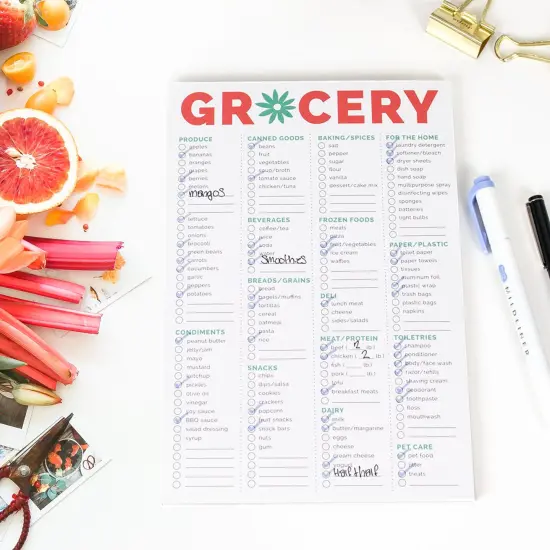 GROCERY
PRODUCE
apples
bananas
oranges
grapes
berries
mangos
lettuce
tomatoes
onions
broccoli
green beans
carrots
cucumbers
garlic
peppers
potatoes
CONDIMENTS
peanut butter
jelly/jam
mayo
mustard
ketchup
pickles
olive oil
vinegar
soy sauce
BBQ sauce
salad dressing
syrup
CANNED GOODS
beans
fruit
vegetables
soup/broth
tomato sauce
chicken/tuna
BEVERAGES
coffee/tea
juice
soda
water
Smoothies
BREADS/GRAINS
bread
bagels/muffins
tortillas
cereal
oatmeal
pasta
rice
SNACKS
chips
dips/salsa
cookies
crackers
popcorn
fruit snacks
snack bars
nuts
gum
BAKING/SPICES
salt
pepper
sugar
flour
vanilla
dessert/cake mix
FROZEN FOODS
meats
pizza
fruit/vegetables
ice cream
waffles
DELI
lunch meat
cheese
sides/salads
MEAT/PROTEIN
beef ( 2 lb.)
chicken ( 2 lb.)
fish ( lb.)
pork ( lb.)
tofu
breakfast meats
DAIRY
milk
butter/margarine
eggs
cheese
cream cheese
yogurt
Half & half
FOR THE HOME
laundry detergent
softener/bleach
dryer sheets
dish soap
hand soap
multipurpose spray
disinfecting wipes
sponges
batteries
light bulbs
PAPER/PLASTIC
toilet paper
paper towels
tissues
aluminum foil
plastic wrap
trash bags
plastic bags
napkins
TOILETRIES
shampoo
conditioner
body/face wash
razor/refills
shaving cream
deodorant
toothpaste
floss
mouthwash
PET CARE
pet food
litter
treats
MILDLINER